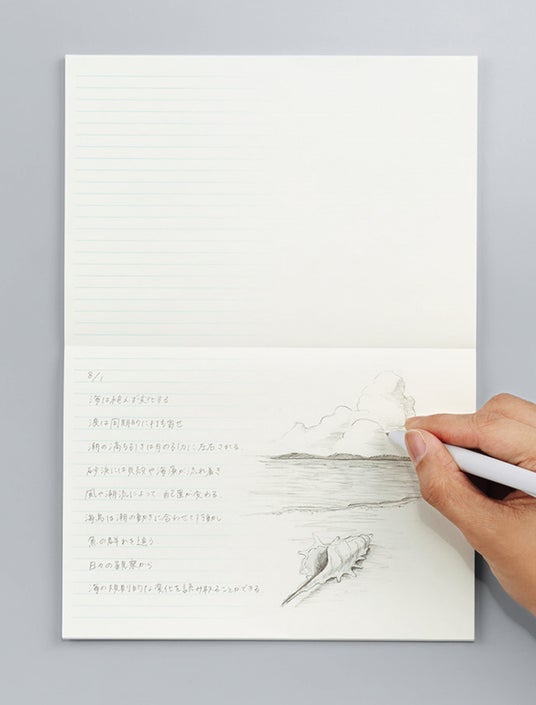 8/1
海は絶えず変化する
波は周期的に打ち寄せ
潮の満ち引きは月の引力に左右される
砂浜には貝殻や海藻が流れ着き
風や潮流によって が変わる
海鳥は潮の動きに合わせて行動し
魚の群れを追う
日々の観察から
海の規則的な変化を読み取ることができる